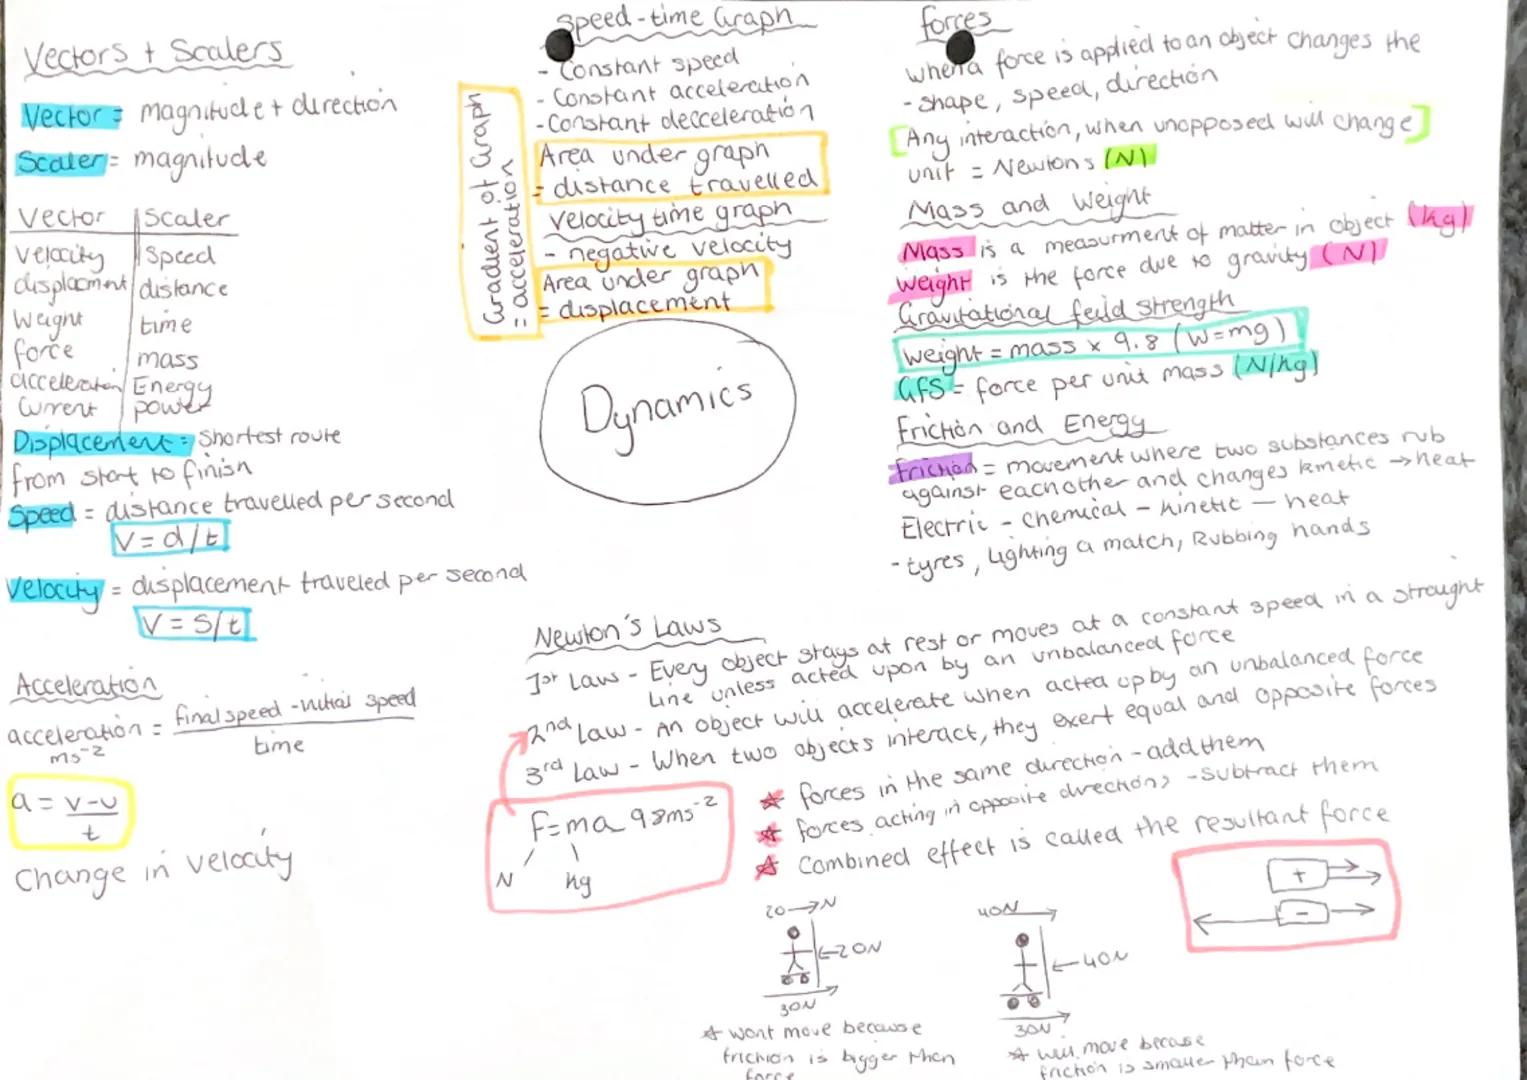 Vectors + Scalers
Vector = magnitude + direction
Scaler = magnitude
Vector | Scaler
velocity | Speed
displacment | distance
Weight | time
force | mass
acceleration | Energy
Current | power
Displacement = Shortest route
from start to finish
Speed = distance travelled per second
V = d/t
Velocity = displacement traveled per second
V = S/t
Acceleration
acceleration = final speed - initial speed
ms-2 time
a = v-u
t
Change in velocity
Speed-time Graph
- Constant speed
- Constant acceleration
- Constant decceleration
Gradient of Graph
= acceleration
Area under graph
= distance travelled
Velocity time graph
- negative velocity
Area under graph
= displacement
Dynamics
forces
when a force is applied to an object changes the
- shape, speed, direction
[Any interaction, when unopposed will change]
unit = Newtons (N)
Mass and Weight
Mass is a measurment of matter in object (kg)
Weight is the force due to gravity (N)
Gravitational feild strength
Weight = mass x 9.8 (W=mg)
GFS = force per unit mass (N/kg)
Friction and Energy
friction = movement where two substances rub
against eachother and changes kinetic → heat
Electric - chemical - kinetic - heat
- tyres, lighting a match, Rubbing hands
Newton's Laws
1st Law - Every object stays at rest or moves at a constant speed in a straight
line unless acted upon by an unbalanced force
2nd Law - An object will accelerate when acted up by an unbalanced force
3rd Law - When two objects interact, they exert equal and opposite forces
F=ma 9.8ms-2
N kg
forces in the same direction - add them
forces acting in opposite directions - subtract them
Combined effect is called the resultant force
+
-
20→N
←20N
30N
wont move because
friction is bigger then
force
40N
←40N
30N
will move becase
friction is smaller than force